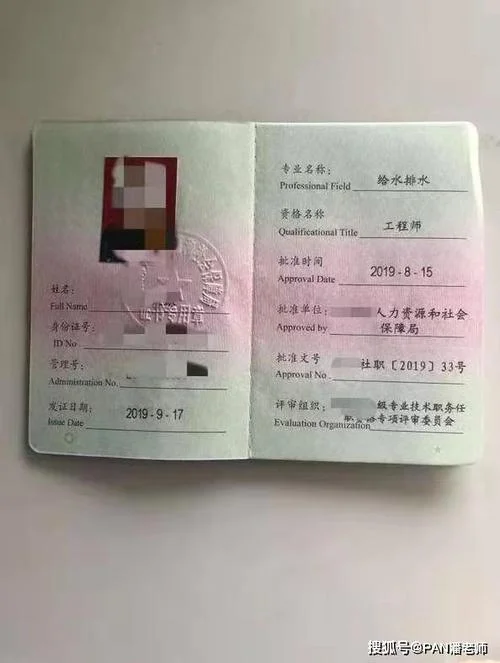 姓名:
Full Name
身份证号:
ID No
管理号:
Administration No.
发证日期:
Issue Date
2019-9-17
证书专用章
专业名称:
Professional Field
给水排水
资格名称
Qualificational Title
工程师
批准时间
Approval Date
2019-8-15
批准单位:
人力资源和社会
Approved by
保障局
批准文号
Approval No.
社职〔2019〕33号
评审组织:
级专业技术职务任
Evaluation Organization
职资格专项评审委员会
搜狐号@PAN潘老师